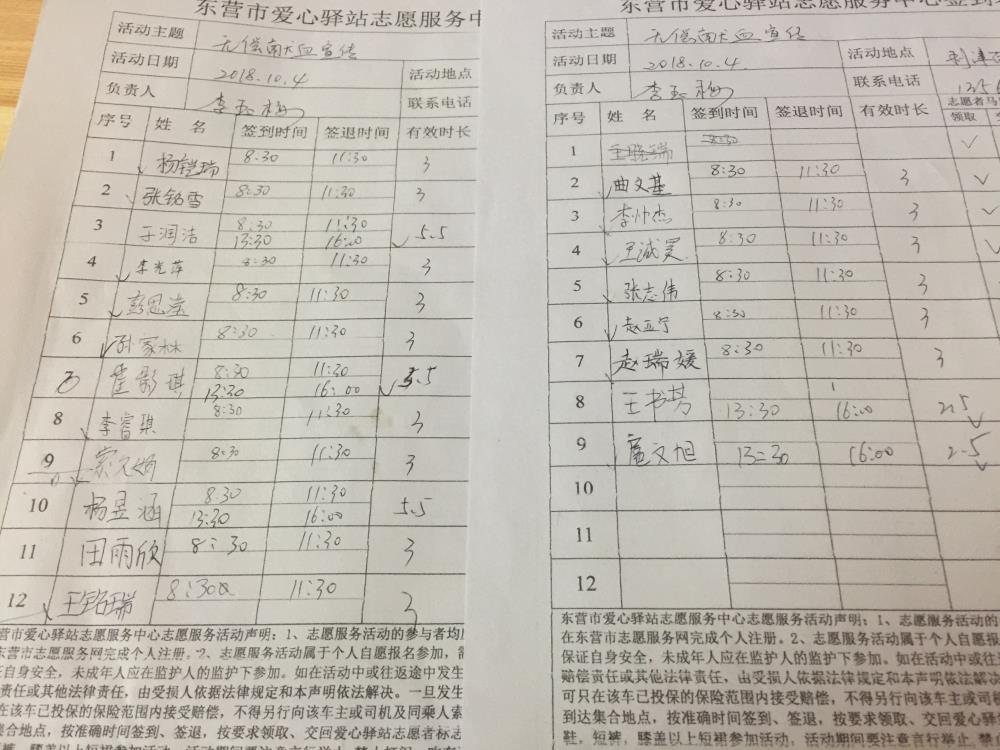 东营市爱心驿站志愿服务中
活动主题 无偿献血宣传
活动日期 2018.10.4 活动地点
负责人 李玉梅 联系电话
序号 姓 名 签到时间 签退时间 有效时长
1 杨铠瑞 8:30 11:30 3
2 张铭雪 8:30 11:30 3
3 于润洁 8:30 11:30 5.5
13:30 16:00
4 李光萍 8:30 11:30 3
5 8:30 11:30 3
6 孙家林 8:30 11:30 3
7 霍影琪 8:30 11:30 5.5
13:30 16:00
8 李睿琪 8:30 11:30 3
9 8:30 11:30 3
10 杨昱涵 8:30 11:30 5.5
13:30 16:00
11 田雨欣 8:30 11:30 3
12 王铭瑞 8:30 11:30 3
营市爱心驿站志愿服务中心志愿服务活动声明：1、志愿服务活动的参与者均
东营市志愿服务网完成个人注册。2、志愿服务活动属于个人自愿报名参加，
证自身安全，未成年人应在监护人的监护下参加。如在活动中或往返途中发生
责任或其他法律责任，由受损人依据法律规定和本声明依法解决。一旦发生
在该车已投保的保险范围内接受赔偿，不得另行向该车主或司机及同乘人索
集合地点，按准确时间签到、签退，按要求领取、交回爱心驿站志愿者标志
裤，膝盖以上短裙参加活动，活动期间要注意言行举止，禁止打闹
东营市爱心驿站志愿服务中心签到
活动主题 无偿献血宣传
活动日期 2018.10.4. 活动地点 利津
负责人 李玉梅 联系电话 1356
序号 姓 名 签到时间 签退时间 有效时长 志愿者马
领取
1 8:30
2 曲文基 8:30 11:30 3
3 李帅杰 8:30 11:30 3
4 王诚昊 8:30 11:30 3
5 张志伟 8:30 11:30 3
6 赵亚宁 8:30 11:30 3
7 赵瑞媛 8:30 11:30 3
8 王书芳 13:30 16:00 2.5
9 庞文旭 13:30 16:00 2.5
10
11
12
东营市爱心驿站志愿服务中心志愿服务活动声明：1、志愿服务活动的
在东营市志愿服务网完成个人注册。2、志愿服务活动属于个人自愿报
保证自身安全，未成年人应在监护人的监护下参加。如在活动中或往
赔偿责任或其他法律责任，由受损人依据法律规定和本声明依法解决
可只在该车已投保的保险范围内接受赔偿，不得另行向该车主或司机
到达集合地点，按准确时间签到、签退，按要求领取、交回爱心驿站
鞋，短裤，膝盖以上短裙参加活动，活动期间要注意言行举止，禁